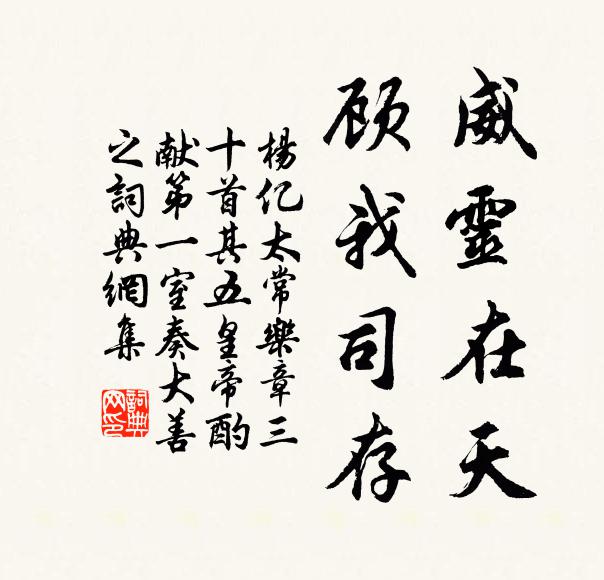 威靈在天
顾我司存
楊亿太常樂章三
十首其五皇帝酌
献第一室奏大善
之詞典網集
詞典
网印